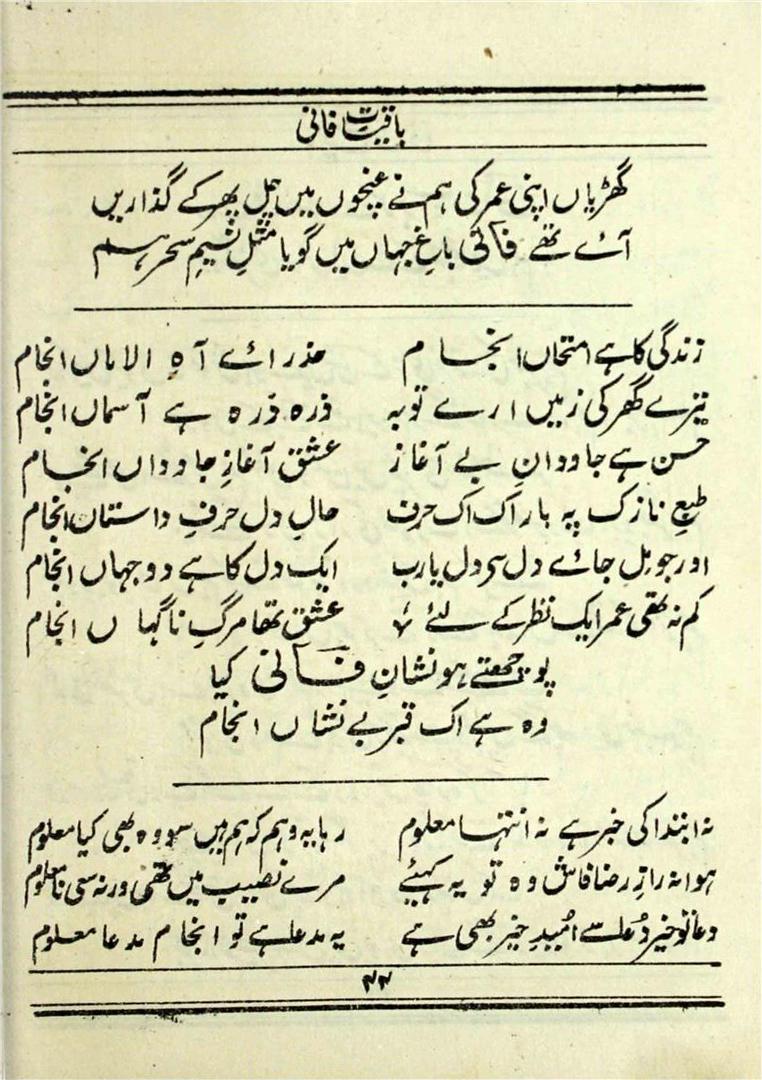 باقیات فانی
گھڑیاں اپنی عمر کی ہم نے غنچوں میں چل پھر کے گذاریں
آئے تھے فانی باغِ جہاں میں گویا مثلِ نسیمِ سحر ہم
زندگی کا ہے امتحاں انجام حذر اے آہ الاماں انجام
تیرے گھر کی زمیں ارے توبہ ذرہ ذرہ ہے آسماں انجام
حسن ہے جاودانِ بے آغاز عشق آغازِ جاوداں انجام
طبع نازک پہ بار اک اک حرف حالِ دل حرفِ داستاں انجام
اور جو مل جائے دل سی دل یارب ایک دل کا ہے دو جہاں انجام
کم نہ تھی عمر ایک نظر کے لئے عشق تھا مرگِ ناگہاں انجام
پوچھتے ہو نشانِ فانی کیا
وہ ہے اک قبرِ بے نشاں انجام
نہ ابتدا کی خبر ہے نہ انتہا معلوم رہا یہ وہم کہ ہم ہیں سو وہ بھی کیا معلوم
ہوا نہ رازِ رضا فاش وہ تو یہ کہیئے مرے نصیب میں تھی ورنہ سی نا معلوم
دعا تو خیر دُعا سے اُمیدِ خیر بھی ہے یہ مدعا ہے تو انجام مدعا معلوم
۴۴